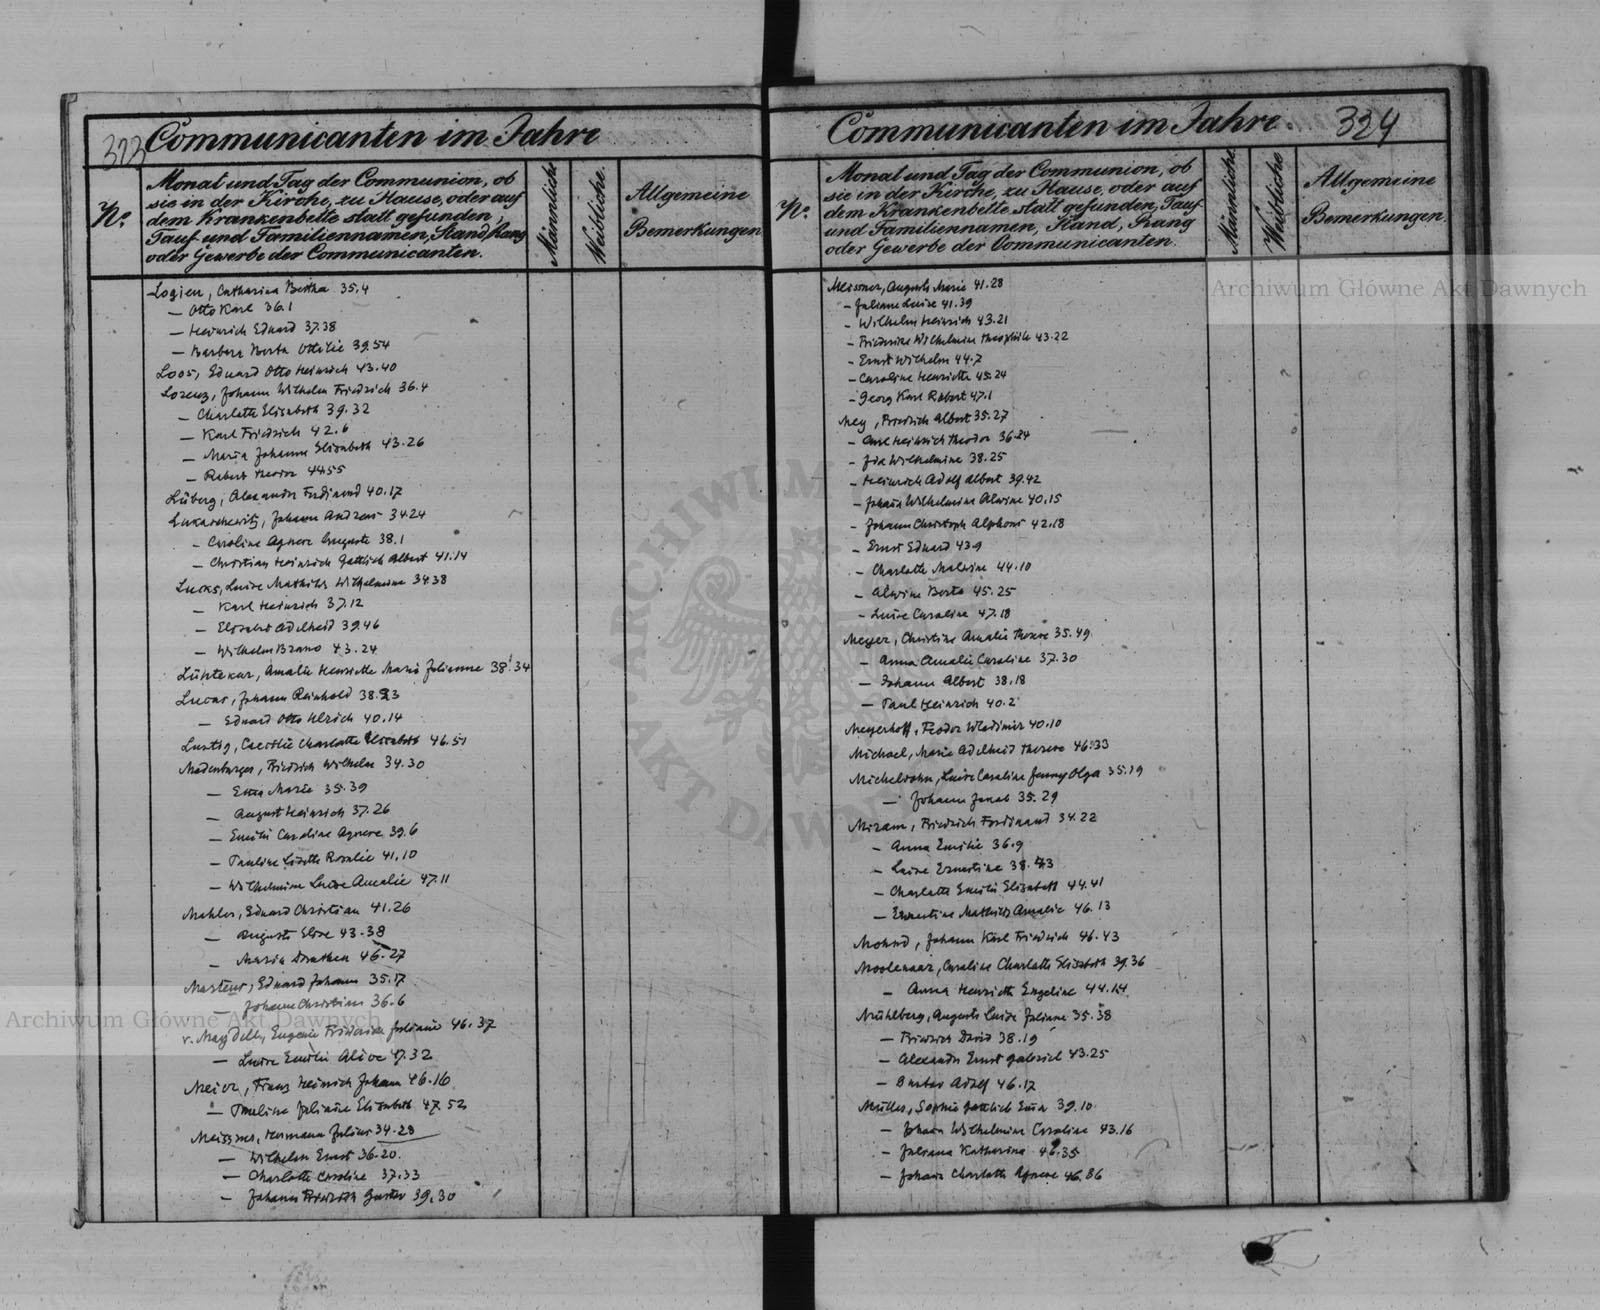 323
Communicanten im Jahre
No.
Monat und Tag der Communion, ob
sie in der Kirche, zu Hause, oder auf
dem Krankenbette statt gefunden,
Tauf und Familiennamen, Stand, Rang
oder Gewerbe der Communicanten.
Männliche
Weibliche.
Allgemeine
Bemerkungen
Logien, Catharina Bertha 35.4
— Otto Karl 36.1
— Heinrich Eduard 37.38
— Barbara Berta Ottilie 39.54
Loos, Eduard Otto Heinrich 43.40
Lorenz, Johann Wilhelm Friedrich 36.4
— Charlotte Elisabeth 39.32
— Karl Friedrich 42.6
— Maria Johanna Elisabeth 43.26
— Robert Theodor 44.55
Lüberg, Alexander Ferdinand 40.17
Lukaschewitz, Johann Andreas 34.24
— Caroline Agnese Auguste 38.1
— Christian Heinrich Gottlieb Albert 41.14
Lucks, Luise Mathilde Wilhelmine 34.38
— Karl Heinrich 37.12
— Elisabet Adelheid 39.46
— Wilhelm Bruno 43.24
Amalie Henriette Marie Julianne 38.34
Johann Reinhold 38.23
— Eduard Otto Ulrich 40.14
Lustig, Caecilie Charlotte Elisabeth 46.51
Madenburger, Friedrich Wilhelm 34.30
— Marie 35.39
— August Heinrich 37.26
— Emilie Caroline Agnese 39.6
— Pauline Lisette Rosalie 41.10
— Wilhelmine Luise Amalie 47.11
Mahler, Eduard Christian 41.26
— Auguste Elise 43.38
— Maria Dorothea 46.27
Masteur, Eduard Johann 35.17
— Johann Christian 36.6
v. Maydell, Eugenie Friederica Juliane 46.37
— Luise Emilie Alice 47.32
Meier, Franz Heinrich Johann 46.16
— Pauline Juliane Elisabeth 47.52
Meissner, Hermann Julius 34.28
— Wilhelm Ernst 36.20.
— Charlotte Caroline 37.33
— Johann Friedrich Gustav 39.30
Communicanten im Jahre 324
No.
Monat und Tag der Communion, ob
sie in der Kirche, zu Hause, oder auf
dem Krankenbette statt gefunden, Tauf
und Familiennamen, Stand, Rang
oder Gewerbe der Communicanten.
Männliche.
Weibliche
Allgemeine
Bemerkungen.
Meissner, Auguste Marie 41.28
— Juliane Luise 41.39
— Wilhelm Heinrich 43.21
— Friederike Wilhelmine Theophile 43.22
— Ernst Wilhelm 44.7
— Caroline Henriette 45.24
— Georg Karl Robert 47.1
Mey, Friedrich Albert 35.27
— Carl Heinrich Theodor 36.24
— Ida Wilhelmine 38.25
— Heinrich Adolf Albert 39.42
— Johanna Wilhelmine Alwine 40.15
— Johann Christoph Alphons 42.18
— Ernst Eduard 43.9
— Charlotte Malwine 44.10
— Alwine Berta 45.25
— Luise Caroline 47.18
Meyer, Christine Amalie Therese 35.49
— Anna Amalie Caroline 37.30
— Johann Albert 38.18
— Paul Heinrich 40.2
Meyerhoff, Feodor Wladimir 40.10
Michael, Marie Adelheid Therese 46.33
Michelsohn, Luise Caroline Jenny Olga 35.19
— Johann Jakob 35.29
Mizam, Friedrich Ferdinand 34.22
— Anna Emilie 36.9
— Luise Ernestine 38.43
— Charlotte Emilie Elisabeth 44.41
— Ernestine Mathilde Amalie 46.13
Mohnd, Johann Karl Friedrich 46.43
Moolenaar, Caroline Charlotte Elisabeth 39.36
— Anna Henriette Engeline 44.14
Mühlberg, Auguste Luise Juliane 35.38
— Friedrich David 38.19
— Alexander Ernst Gabriel 43.25
— Gustav Adolf 46.17
Müller, Sophie Gottlieb Emma 39.10
— Johanna Wilhelmine Caroline 43.16
— Juliana Katharina 46.35
— Johanna Charlotte Agnese 46.86
Archiwum Główne Akt Dawnych
Archiwum Główne Akt Dawnych
ARCHIWUM
AKT DAWNYCH